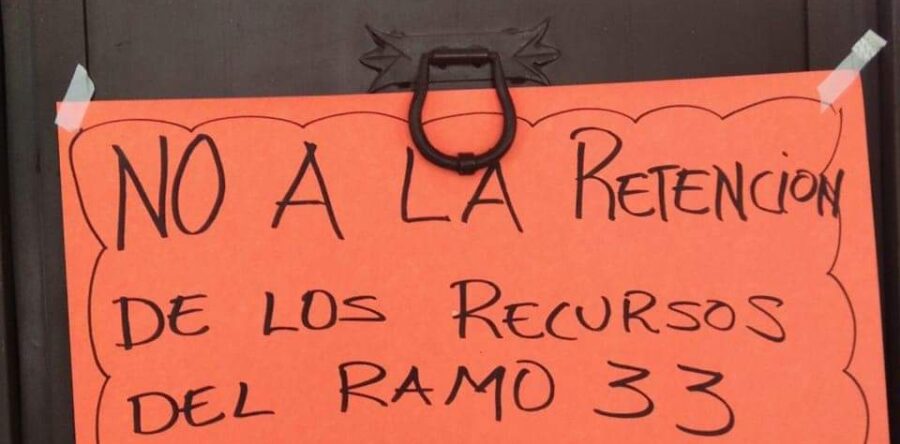 NO A LA RETENCION
DE LOS RECURSOS
DEL RAMO 33